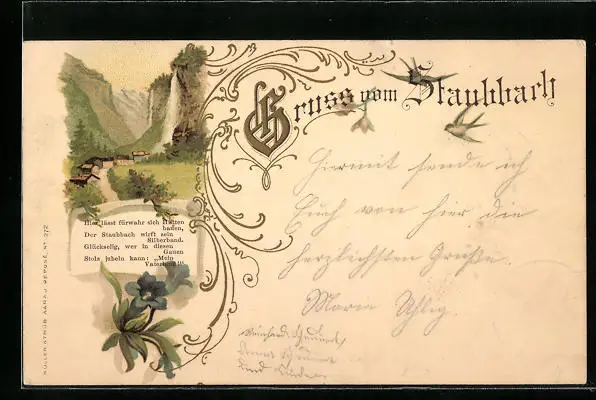 Gruss vom Staubbach
Hier lässt fürwahr sich Hütten
bauen,
Der Staubbach wirft sein
Silberband.
Glückselig, wer in diesen
Gauen
Stolz jubeln kann: „Mein
Vaterland!"
Hiermit sende ich
Euch von hier die
herzlichsten Grüße.
Maria Uhlig.
und
MÜLLER & TRÜB AARAU DÉPOSÉ. No 272